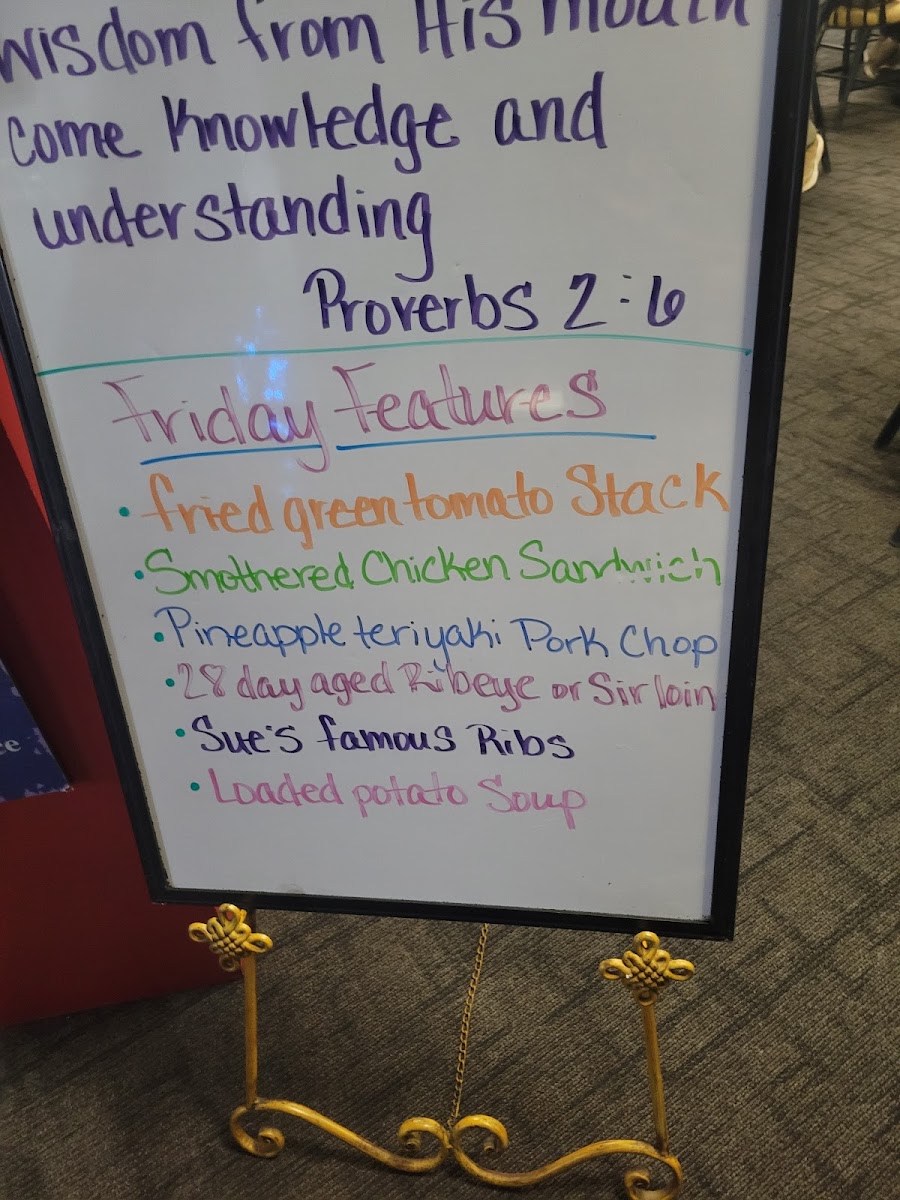 wisdom from His mouth
come knowledge and
understanding
Proverbs 2:6
Friday Features
• fried green tomato Stack
• Smothered Chicken Sandwich
• Pineapple teriyaki Pork Chop
• 28 day aged Ribeye or Sirloin
• Sue's famous Ribs
• Loaded potato Soup